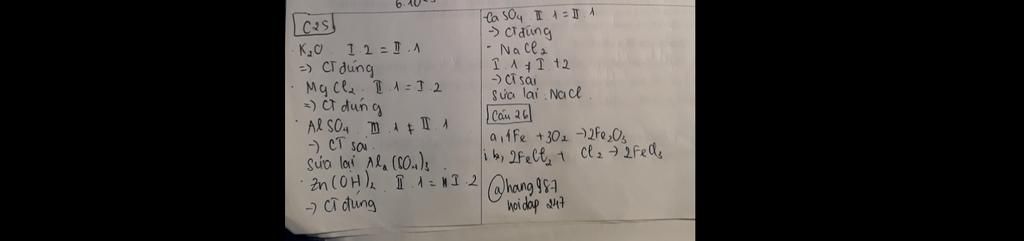 6.10
C25
. K₂O I.2 = II.1
=> CT đúng
. MgCl₂ II.1 = I.2
=> CT đúng
. AlSO₄ III.1 ≠ II.1
-> CT sai
sửa lại Al₂(SO₄)₃
. Zn(OH)₂ II.1 = I.2
-> CT đúng
CaSO₄ II.1 = II.1
-> CT đúng
- NaCl₂
I.1 ≠ I.2
-> CT sai
sửa lại. NaCl.
Câu 26
a, 4Fe + 3O₂ -> 2Fe₂O₃
b, 2FeCl₂ + Cl₂ -> 2FeCl₃
@hang987
hoidap 247